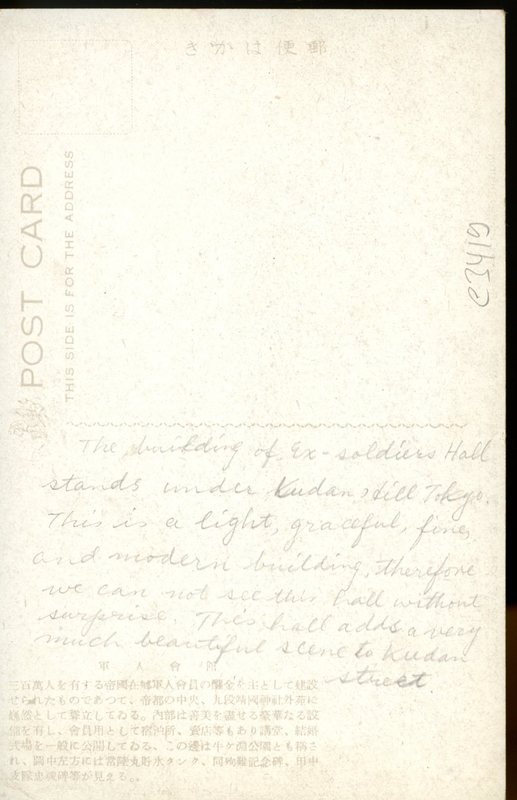 きかは便郵
POST CARD
THIS SIDE IS FOR THE ADDRESS
The building of Ex-soldiers Hall
stands under Kudan Hill Tokyo.
This is a light, graceful, fine,
and modern building, therefore
we can not see this hall without
surprise. This hall adds a very
much beautiful scene to Kudan
street.
軍人會館
三百萬人を有する帝國在鄕軍人會員の醵金を主として建設
せられたものであつて、帝都の中央、九段靖國神社外苑に
巍然として聳立してゐる。內部は善美を盡せる豪華なる設
備を有し、會員用として宿泊所、賣店等もあり講堂、結婚
式場を一般に公開してゐる、この邊は牛ケ淵公園とも稱さ
れ、圖中左方には常陸丸貯水タンク、同殉難記念碑、甲中
支隊忠魂碑等が見える。